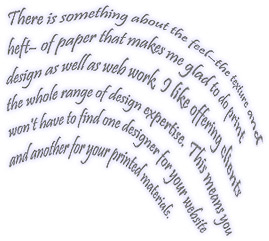 There is something about the feel–the texture and
heft– of paper that makes me glad to do print
design as well as web work. I like offering clients
the whole range of design expertise. This means you
won't have to find one designer for your website
and another for your printed materials.